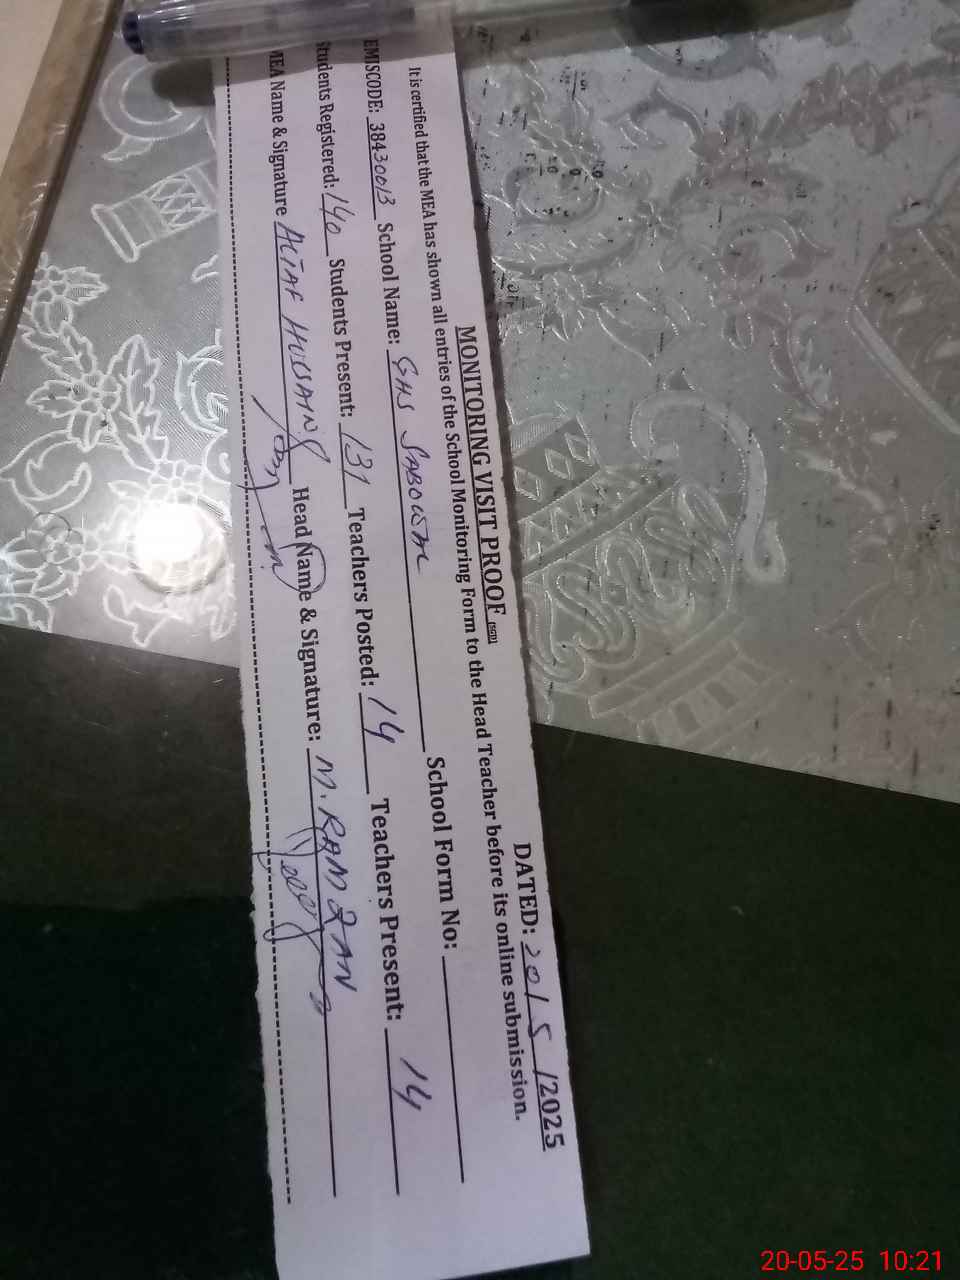 MONITORING VISIT PROOF (SGD) DATED: 20/5/2025
It is certified that the MEA has shown all entries of the School Monitoring Form to the Head Teacher before its online submission.
EMISCODE: 38430013 School Name: GHS SABOWAL School Form No:
Students Registered: 140 Students Present: 131 Teachers Posted: 14 Teachers Present: 14
MEA Name & Signature ALTAF HUSSAIN Head Name & Signature: M. RAMZAN
20-05-25 10:21